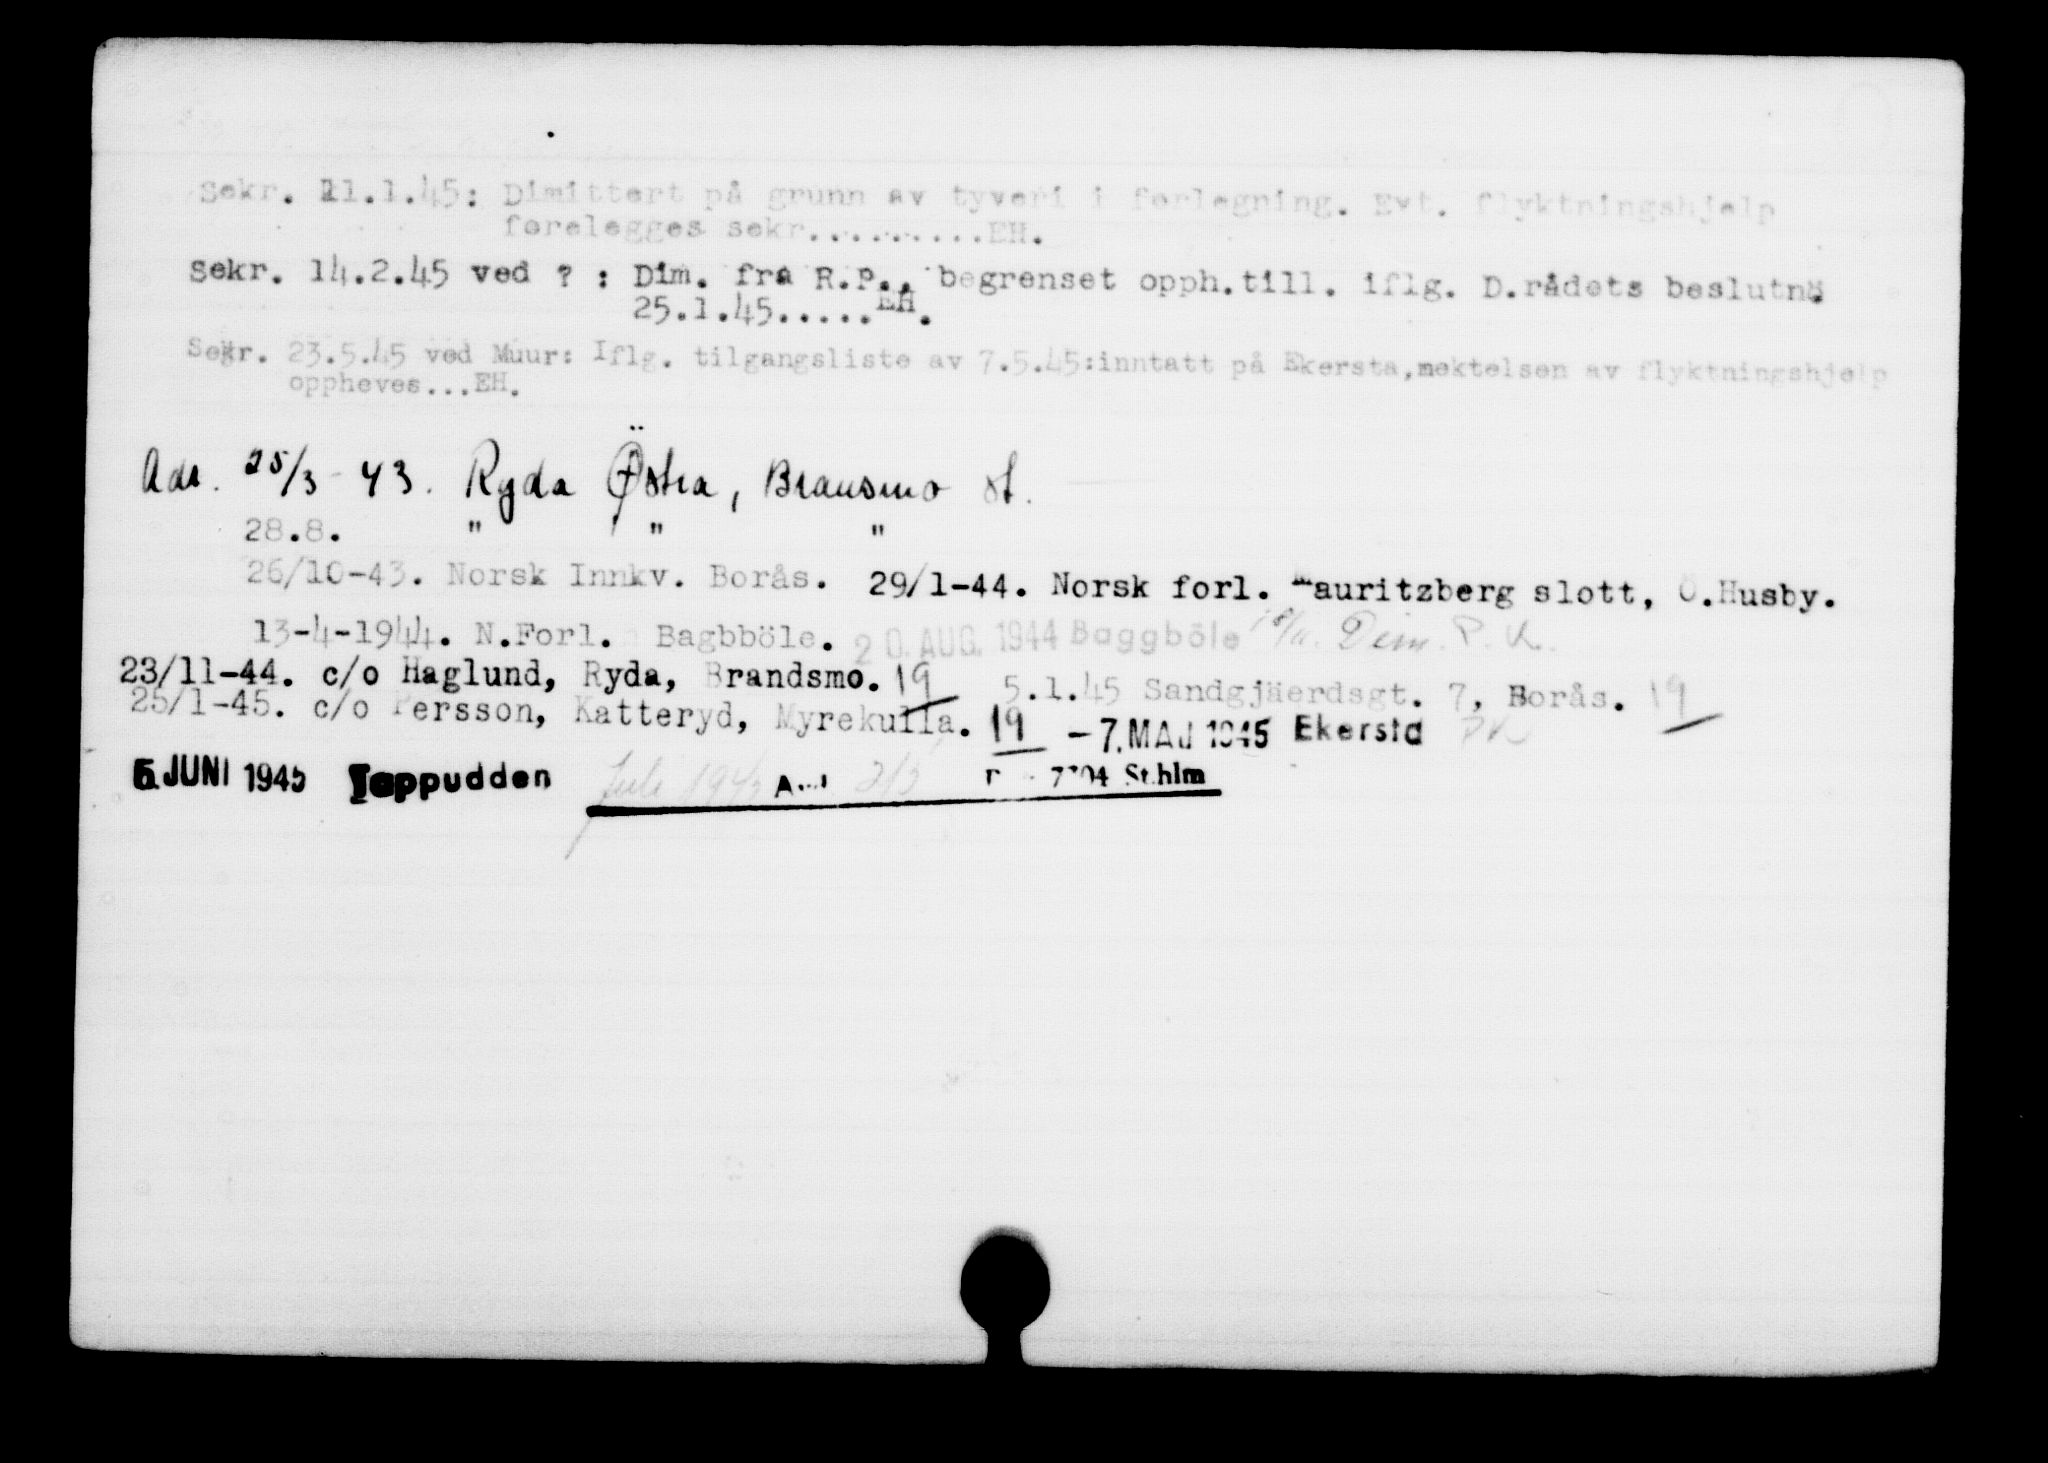 Sekr. 11.1.45: Dimittert på grunn av tyveri i forlegning. Evt. flyktningshjelp
forelegges sekr.........EH.
Sekr. 14.2.45 ved ? : Dim. fra R.P., begrenset opph.till. iflg. D.rådets beslutn.
25.1.45.....EH.
Sekr. 23.5.45 ved Muur: Iflg. tilgangsliste av 7.5.45:inntatt på Ekersta,nektelsen av flyktningshjelp
oppheves...EH.
Adr. 25/3-43. Ryda Östra, Bransmo st.
28.8. " " "
26/10-43. Norsk Innkv. Borås. 29/1-44. Norsk forl. Mauritzberg slott, Ö.Husby.
13-4-1944. N.Forl. Bagbböle. 20. AUG. 1944 Baggböle Dim. P.K.
23/11-44. c/o Haglund, Ryda, Brandsmo. 19 5.1.45 Sandgjäerdsgt. 7, Borås. 19
25/1-45. c/o Persson, Katteryd, Myrekulla. 19 -7. MAJ 1945 Ekersta PK
5 JUNI 1945 Tappudden Juli 1945 2/3 Sthlm